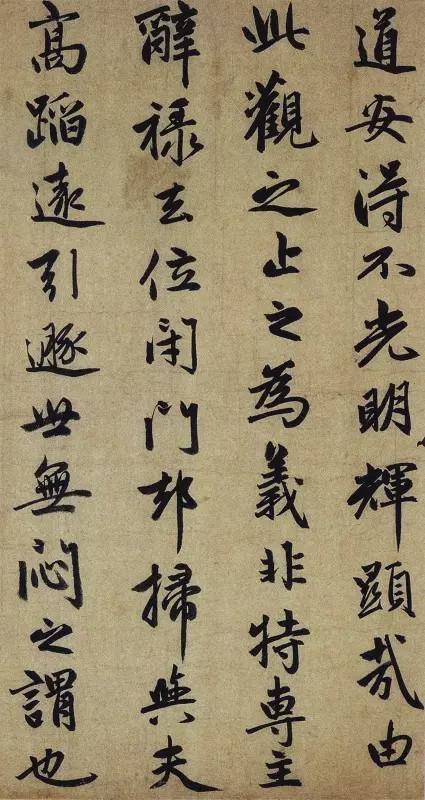 道安得不光明輝顯哉由
此觀之止之為義非特專主
辭祿去位閉門却掃與夫
髙蹈遠引遯世無悶之謂也